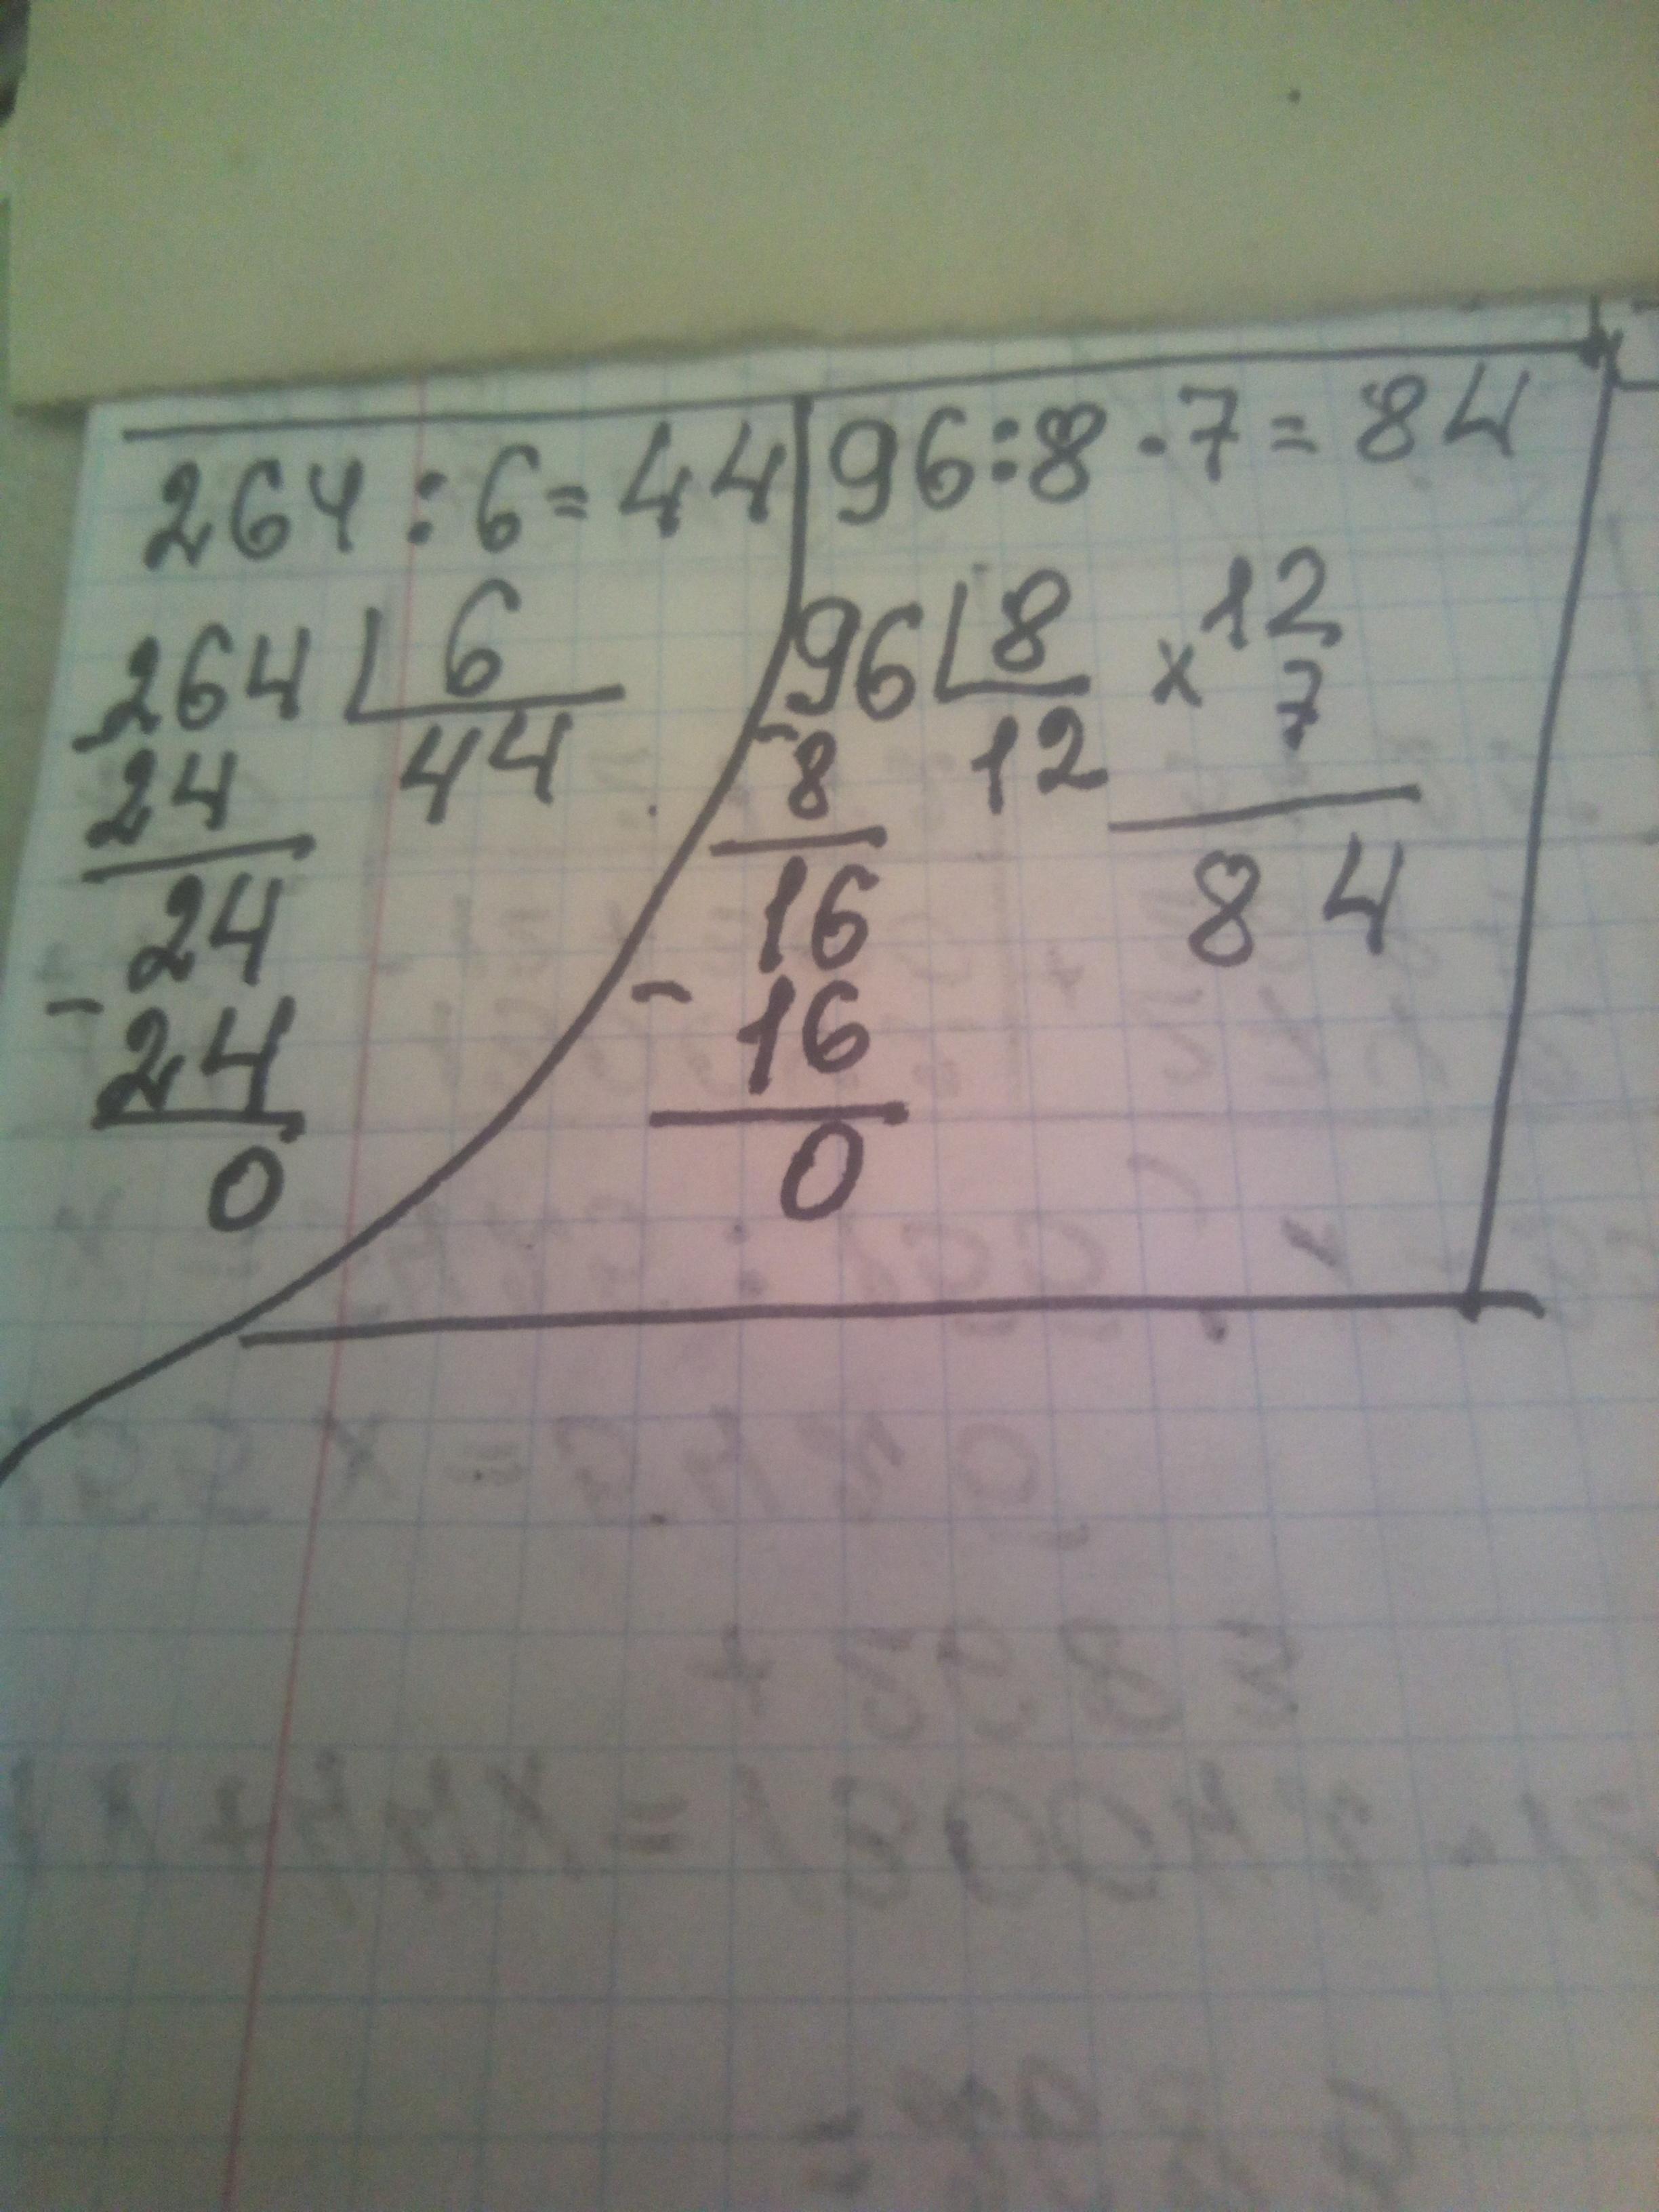 264 : 6 = 44
264 6
44
24
24
- 24
0
96 : 8 · 7 = 84
96 8
12
- 8
16
- 16
0
12
x 7
84